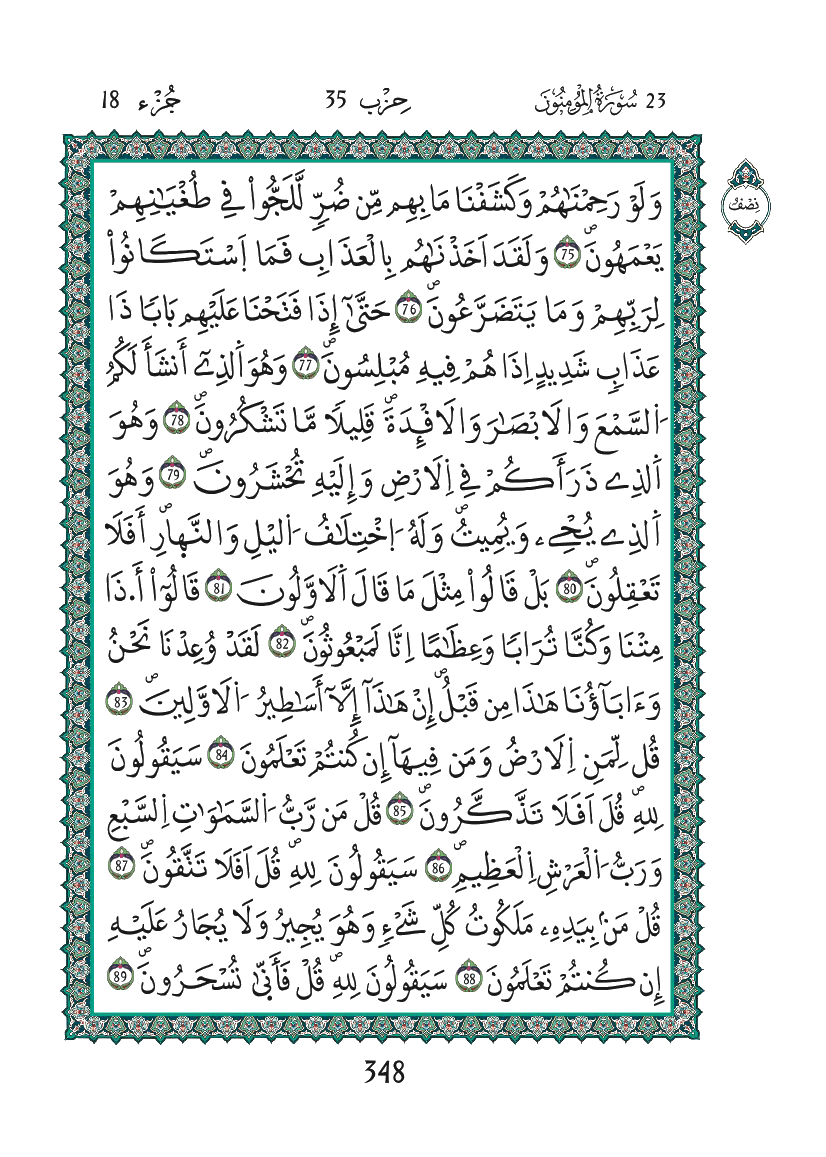 23 سُورَةُ اُلْمُومِنُونَ حِزْب 35 جُزْء 18
نِصْفُ
وَلَوْ رَحِمْنَٰهُمْ وَكَشَفْنَا مَا بِهِم مِّن ضُرّٖ لَّلَجُّواْ فِے طُغْيَٰنِهِمْ
يَعْمَهُونَۖ 75 وَلَقَدَ اَخَذْنَٰهُم بِالْعَذَابِ فَمَا اَسْتَكَانُواْ
لِرَبِّهِمْ وَمَا يَتَضَرَّعُونَۖ 76 حَتَّىٰٓ إِذَا فَتَحْنَا عَلَيْهِم بَابٗا ذَا
عَذَابٖ شَدِيدٍ اِذَا هُمْ فِيهِ مُبْلِسُونَۖ 77 وَهُوَ اَلذِےٓ أَنشَأَ لَكُمُ
اُلسَّمْعَ وَالَابْصَٰرَ وَالَافْـِٕدَةَۖ قَلِيلٗا مَّا تَشْكُرُونَۖ 78 وَهُوَ
اَلذِے ذَرَأَكُمْ فِے اِلَارْضِ وَإِلَيْهِ تُحْشَرُونَۖ 79 وَهُوَ
اَلذِے يُحْيِۦ وَيُمِيتُۖ وَلَهُ اُخْتِلَٰفُ اُليْلِ وَالنَّه۪ارِۖ أَفَلَا
تَعْقِلُونَۖ 80 بَلْ قَالُواْ مِثْلَ مَا قَالَ اَلَاوَّلُونَ 81 قَالُوٓاْ أَ.ذَا
مِتْنَا وَكُنَّا تُرَابٗا وَعِظَٰمًا اِنَّا لَمَبْعُوثُونَۖ 82 لَقَدْ وُعِدْنَا نَحْنُ
وَءَابَآؤُنَا هَٰذَا مِن قَبْلُۖ إِنْ هَٰذَآ إِلَّآ أَسَٰطِيرُ اُلَاوَّلِينَۖ 83
قُل لِّمَنِ اِلَارْضُ وَمَن فِيهَآ إِن كُنتُمْ تَعْلَمُونَۖ 84 سَيَقُولُونَ
لِلهِۖ قُلَ اَفَلَا تَذَّكَّرُونَۖ 85 قُلْ مَن رَّبُّ اُلسَّمَٰوَٰتِ اِلسَّبْعِ
وَرَبُّ اُلْعَرْشِ اِلْعَظِيمِۖ 86 سَيَقُولُونَ لِلهِۖ قُلَ اَفَلَا تَتَّقُونَۖ 87
قُلْ مَنۢ بِيَدِهِۦ مَلَكُوتُ كُلِّ شَےْءٖ وَهُوَ يُجِيرُ وَلَا يُجَارُ عَلَيْهِ
إِن كُنتُمْ تَعْلَمُونَ 88 سَيَقُولُونَ لِلهِۖ قُلْ فَأَنّ۪ىٰ تُسْحَرُونَۖ 89
348